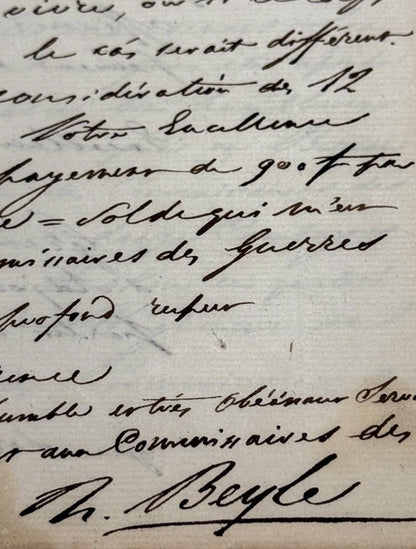 vivre, ou
le cas serait différent.
considération des 12
Votre Excellence
payement de 900 f par
e = Solde qui m'est
missaires des Guerres
profond respect
lence
humble et très obéissant Serv
aux Commissaires des
h. Beyle